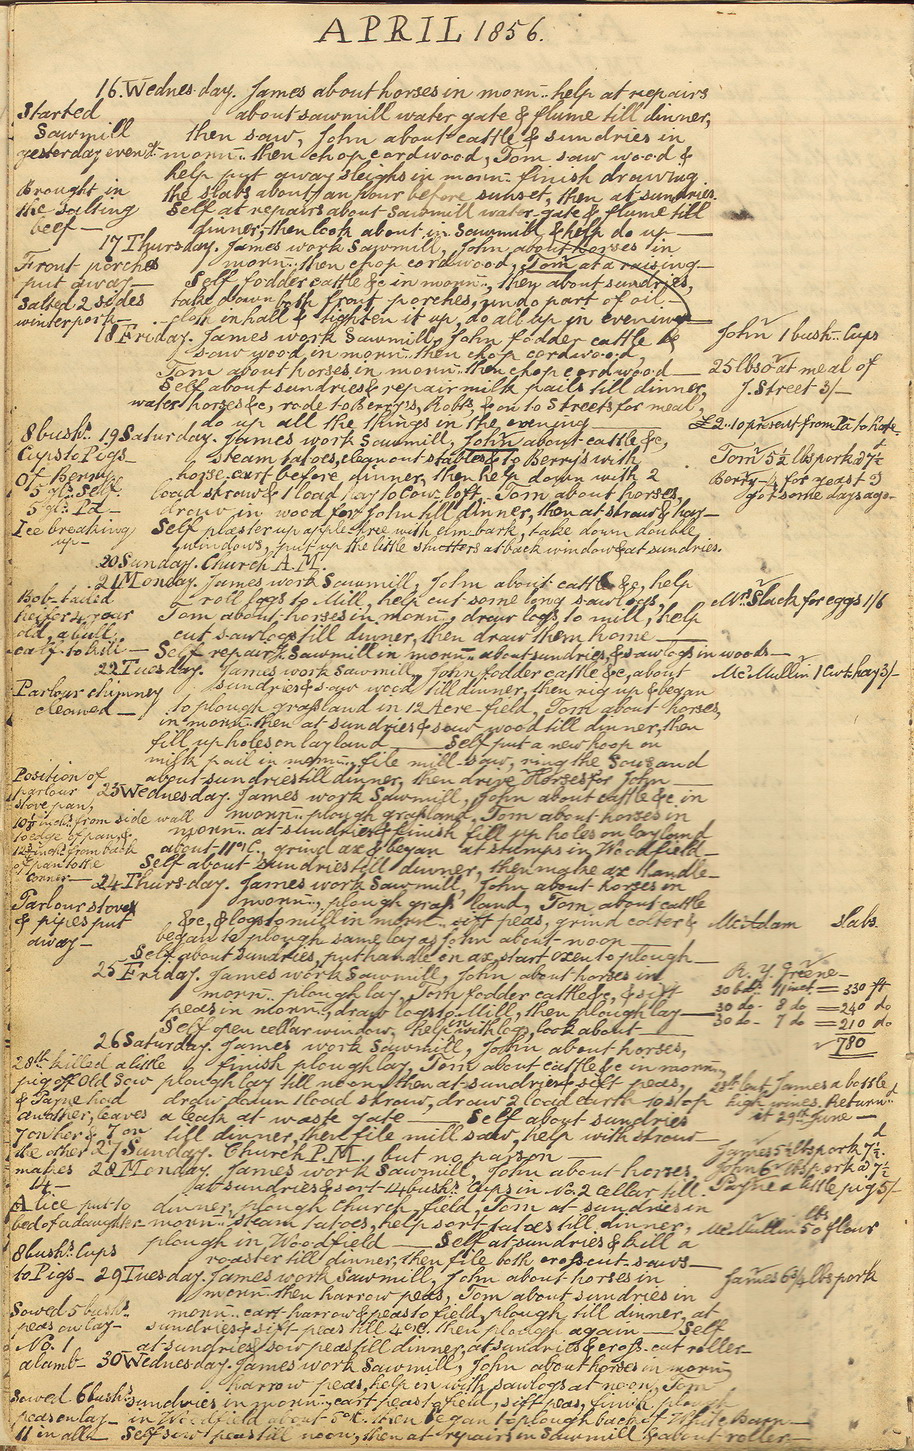 APRIL 1856.
16. Wednes-day. James about horses in morn:- help at repairs
Started about sawmill water gate & flume till dinner,
Sawmill then saw, John about cattle & sundries in
yesterday even:g- morn:- then chop cordwood, Tom saw wood &
help put away sleighs in morn:- finish drawing
Brought in the slabs about 1 an hour before sunset, then at sundries.
the Salting Self at repairs about Sawmill water-gate & flume till
beef — dinner, then look about in Sawmill & help do up —
17 Thursday. James work Sawmill, John about horses in
Front porches morn:- then chop cordwood, Tom at a raising —
put away — Self fodder cattle &c in morn:-, then about sundries,
Salted 2 sides take down both front porches, undo part of oil —
winter pork — cloth in hall & tighten it up, do all up in evening —
18 Friday. James work Sawmill, John fodder cattle &c John 1 bush:- Cups
saw wood in morn:- then chop cordwood,
Tom about horses in morn:- then chop cordwood — 25 lbs oat meal of
Self about sundries & repair milk pails till dinner, J. Street 3/–
water horses &c, rode to Berry's, Robts, & on to Streets for meal,
do up all the things in the evening — £2.10 present from Pa to Kate.
8 bush:s 19 Saturday. James work Sawmill, John about cattle &c,
Cups to Pigs — steam tatoes, clean out stables & to Berry's with Tom 5½ lbs pork 27½
Of Berrys horse-cart before dinner, then help down with 2 Berry – ½ for yeast 3d
5 gls. Self. load straw & 1 load hay to Cow-loft — Tom about horses, got some days ago –
5 gls. Pa — draw in wood for John till dinner, then at straw & hay —
Ice breaking Self plaster up apple tree with elm bark, take down double
up — windows, put up the little shutters at back window & at sundries.
20 Sunday. Church A.M.
21 Monday. James work Sawmill, John about cattle &c, help
Bob-tailed roll logs to Mill, help cut some long sawlogs, Mrs Slack for eggs 1/6
heifer 4 year Tom about horses in morn:-, draw logs to mill, help
old, a bull cut sawlogs till dinner, then draw them home —
calf to kill — Self repair & Sawmill in morn:- about sundries & sawlogs in woods —
22 Tuesday. James work Sawmill, John fodder cattle &c, about McMullin 1 Cwt. hay 3/–
Parlour chimney sundries & saw wood till dinner, then rig up & began
cleaned — to plough grassland in 12 Acre-field, Tom about horses,
in morn:- then at sundries & saw-wood till dinner, then
fill up holes on layland — Self put a new hoop on
milk pail in morn:-, file mill-saw, ring the Sows and
Position of about sundries till dinner, then drive Horses for John —
parlour 23 Wednesday. James work Sawmill, John about cattle &c in
stove pan, morn:- plough grassland, Tom about horses in
10½ inch: from side wall morn:- at sundries & finish fill up holes on layland
to edge of pan, & about 11 o'C., grind ax & began at stumps in Woodfield —
12½ inch: from back
of pan to the Self about sundries till dinner, then make ax handle —
corner — 24 Thurs-day. James work Sawmill, John about horses in
Parlour stoves morn:-, plough grass land, Tom about cattle
& pipes put &c, & logs to mill in morn:- sift peas, grind colter & McAdam Slabs.
away — began to plough same lay as John about noon —
Self about sundries, put handle on ax, start oxen to plough —
25 Friday. James work Sawmill, John about horses in R. Y. Greene –
morn:- plough lay, Tom fodder cattle &c, & sift 30 bds. 11 inct. = 330 ft
peas in morn:-, draw logs to Mill, then plough lay — 30 do - 8 do = 240 do
Self open cellar window, help in with logs, look about — 30 do - 7 do = 210 do
26 Saturday. James work Sawmill, John about horses, 780
28th killed a little finish plough lay, Tom about cattle &c in morn:-,
pig off Old Sow plough lay till noon, then at sundries & sift peas, 28th lent James a bottle
& Payne had draw down 1 load straw, draw 2 load earth to stop high wines. Returnd
another, leaves a leak at waste gate — Self about sundries it 29th June —
7 on her & 7 on till dinner, then file mill saw, help with straw
the other 27 Sunday. Church P.M., but no parson — James 5½ lbs pork 7½d
makes 28 Monday. James work Sawmill, John about horses, John 6 lbs pork a 7½
14 — at sundries & sort 14 bush:s Cups in No. 2 cellar till Payne a little pig 5/–
Alice put to dinner, plough Church field, Tom at sundries in
bed of a daughter morn:- steam tatoes, help sort tatoes till dinner, McMullin 50 lbs flour
plough in Woodfield — Self at sundries & kill a
8 bush:s Cups roaster till dinner, then file both crosscut-saws —
to Pigs — 29 Tuesday. James work Sawmill, John about horses in James 6¾ lbs pork
morn:- then harrow peas, Tom about sundries in
Sowed 5 bush:s morn:- cart harrow & peas to field, plough till dinner, at
peas on lay — sundries & sift peas till 4 o'C. then plough again — Self
No. 1 at sundries & sow peas till dinner, at sundries & cross-cut roller —
a lamb — 30 Wednesday. James work Sawmill, John about horses in morn:-,
harrow peas, help in with sawlogs at noon, Tom
Sowed 6 bush:s sundries in morn:-, cart peas to field, sift peas, finish plough
peas on lay — in Woodfield about 5 o'C. then began to plough back of White Barn —
11 in all — Self sow peas till noon, then at repairs in Sawmill & about roller —